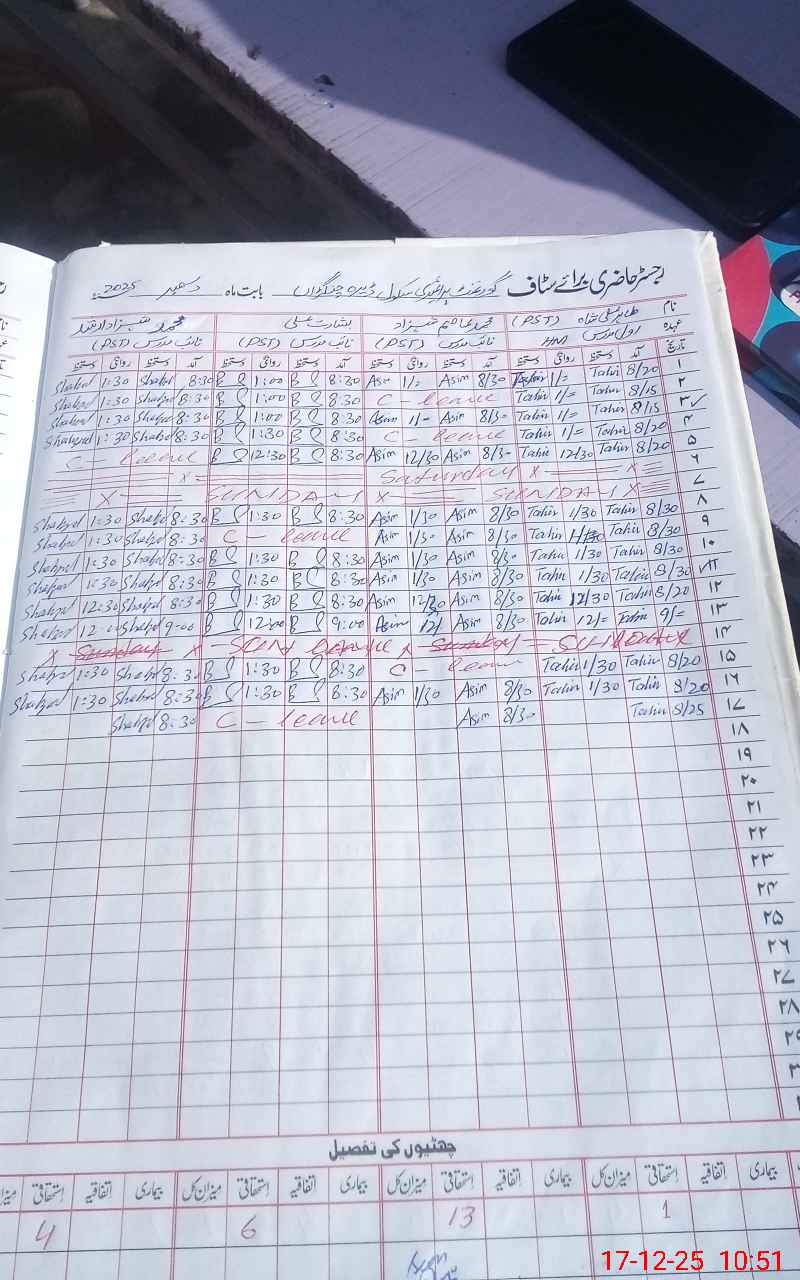 رجسٹر حاضری برائے سٹاف گورنمنٹ پرائمری سکول ڈیرہ بابت ماہ دسمبر 2025
نام طاہر علی شاہ (PST) محمد عاصم شہزاد بشارت علی محمد شہزاد ارشد
عہدہ اول مدرس HM نائب مدرس (PST) نائب مدرس (PST) نائب مدرس (PST)
تاریخ آمد دستخط روانگی دستخط آمد دستخط روانگی دستخط آمد دستخط روانگی دستخط آمد دستخط روانگی دستخط
۱ 8/20 Tahir 1/= Tahir 8/30 Asim 1/= Asim 8:30 1:00 8:30 Shahzad 1:30 Shahzad
۲ 8/15 Tahir 1/= Tahir C - leave 8:30 1:00 8:30 Shahzad 1:30 Shahzad
۳ 8/15 Tahir 1/= Tahir 8/30 Asim 1/- Asim 8:30 1:00 8:30 Shahzad 1:30 Shahzad
۴ 8/20 Tahir 1/= Tahir C - leave 8:30 1:30 8:30 Shahzad 1:30 Shahzad
۵ 8/20 Tahir 12/30 Tahir 8/30 Asim 12/30 Asim 8:30 12:30 C - leave
۶ Saturday x x x
۷ x SUNDAY x SUNDAY x
۸ 8/30 Tahir 1/30 Tahir 8/30 Asim 1/30 Asim 8:30 1:30 8:30 Shahzad 1:30 Shahzad
۹ 8/30 Tahir Tahir 8/30 Asim 1/30 Asim C - leave 8:30 Shahzad 1:30 Shahzad
۱۰ 8/30 Tahir 1/30 Tahir 8/30 Asim 1/30 Asim 8:30 1:30 8:30 Shahzad 1:30 Shahzad
۱۱ 8/30 Tahir 1/30 Tahir 8/30 Asim 1/30 Asim 8:30 1:30 8:30 Shahzad 1:30 Shahzad
۱۲ 8/20 Tahir 12/30 Tahir 8/30 Asim 12/30 Asim 8:30 1:30 8:30 Shahzad 12:30 Shahzad
۱۳ 9/= Tahir 12/= Tahir 8/30 Asim 12/ Asim 9:00 12:00 9:00 Shahzad 12:00 Shahzad
۱۴ x Sunday x
۱۵ 8/20 Tahir 1/30 Tahir C - leave 8:30 1:30 8:30 Shahzad 1:30 Shahzad
۱۶ 8/20 Tahir 1/30 Tahir 8/30 Asim 1/30 Asim 8:30 1:30 8:30 Shahzad 1:30 Shahzad
۱۷ 8/25 Tahir 8/30 Asim C - leave 8:30 Shahzad
۱۸
۱۹
۲۰
۲۱
۲۲
۲۳
۲۴
۲۵
۲۶
۲۷
۲۸
۲۹
چھٹیوں کی تفصیل
بیماری اتفاقیہ استحقاقی میزان کل بیماری اتفاقیہ استحقاقی میزان کل بیماری اتفاقیہ استحقاقی میزان کل بیماری اتفاقیہ استحقاقی میزان
1 13 6 4
Asim
17-12-25 10:51